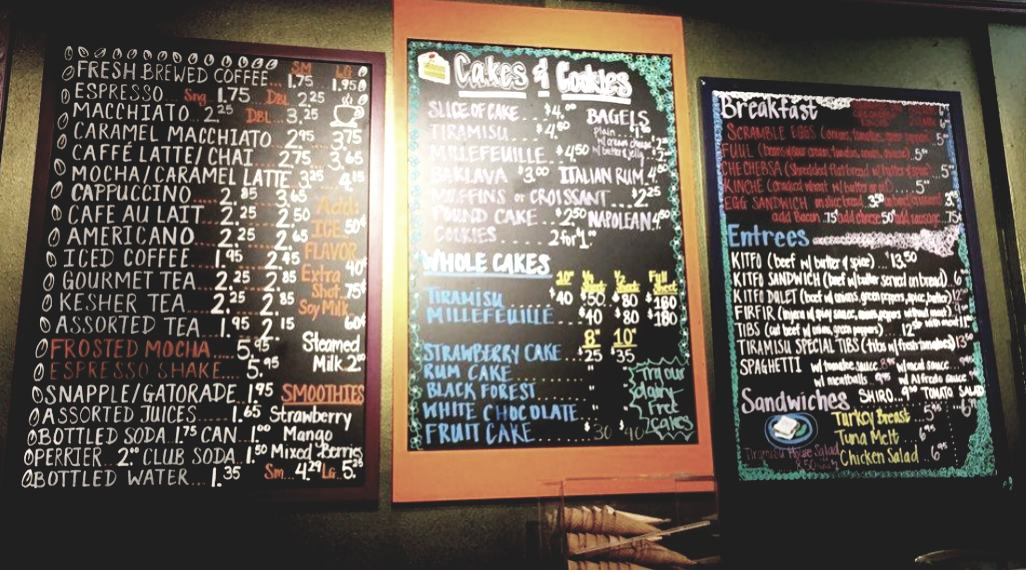 SM LG
FRESH BREWED COFFEE 1.75 1.95
ESPRESSO Sng 1.75 DBL 2.25
MACCHIATO 2.25 DBL 3.25
CARAMEL MACCHIATO 2.95 3.75
CAFFÉ LATTE/CHAI 2.75 3.65
MOCHA/CARAMEL LATTE 3.25 4.15
CAPPUCCINO 2.85 3.65
CAFE AU LAIT 2.25 2.50
AMERICANO 2.25 2.65
ICED COFFEE 1.95 2.45
GOURMET TEA 2.25 2.85
KESHER TEA 2.25 2.85
ASSORTED TEA 1.95 2.15
FROSTED MOCHA 5.95
ESPRESSO SHAKE 5.95
SNAPPLE/GATORADE 1.95
ASSORTED JUICES 1.65
BOTTLED SODA 1.75 CAN 1.00
PERRIER 2.00 CLUB SODA 1.50
BOTTLED WATER 1.35
Add:
ICE 50¢
FLAVOR 40¢
Extra
Shot 75¢
Soy Milk
60¢
Steamed
Milk 2.00
SMOOTHIES
Strawberry
Mango
Mixed Berries
Sm. 4.29 Lg 5.25
Cakes & Cookies
SLICE OF CAKE $4.00
TIRAMISU $4.50
MILLEFEUILLE $4.50
BAKLAVA $3.00 ITALIAN RUM
MUFFINS OR CROISSANT $2.25
POUND CAKE $2.50 NAPOLEAN
COOKIES 2 for $1.00
BAGELS
Plain
w/ cream cheese
w/ butter & jelly
WHOLE CAKES
10" ¼ Sheet ½ Sheet Full Sheet
TIRAMISU $40 $50 $80 $180
MILLEFEUILLE $40 $80 $180
8" 10"
STRAWBERRY CAKE $25 $35
RUM CAKE "
BLACK FOREST "
WHITE CHOCLATE "
FRUIT CAKE $30 $40
Try our
dairy
Free
Cakes
Breakfast
SCRAMBLE EGGS (onions, tomatoes, green peppers)
FUUL
CHECHEBSA (shredded flat bread w/ butter & spice)
KINCHE (cracked wheat w/ butter or oil)
EGG SANDWICH on slice bread
add Bacon .75 add cheese .50 add sausage .75
Entrees
KITFO (beef w/ butter & spice) $13.50
KITFO SANDWICH (beef w/ butter served on bread)
KITFO DULET (beef w/ onions, green peppers, spice, butter)
FIRFIR
TIBS (cut beef w/ onion, green peppers)
TIRAMISU SPECIAL TIBS (tibs w/ fresh tomatoes)
SPAGHETTI w/ tomatoe sauce w/ meat sauce
w/ meatballs w/ Alfredo sauce
SHIRO TOMATO SALAD
Sandwiches
Turkey Breast
Tuna Melt 6.95
Chicken Salad 6.95
Tiramisu House Salad